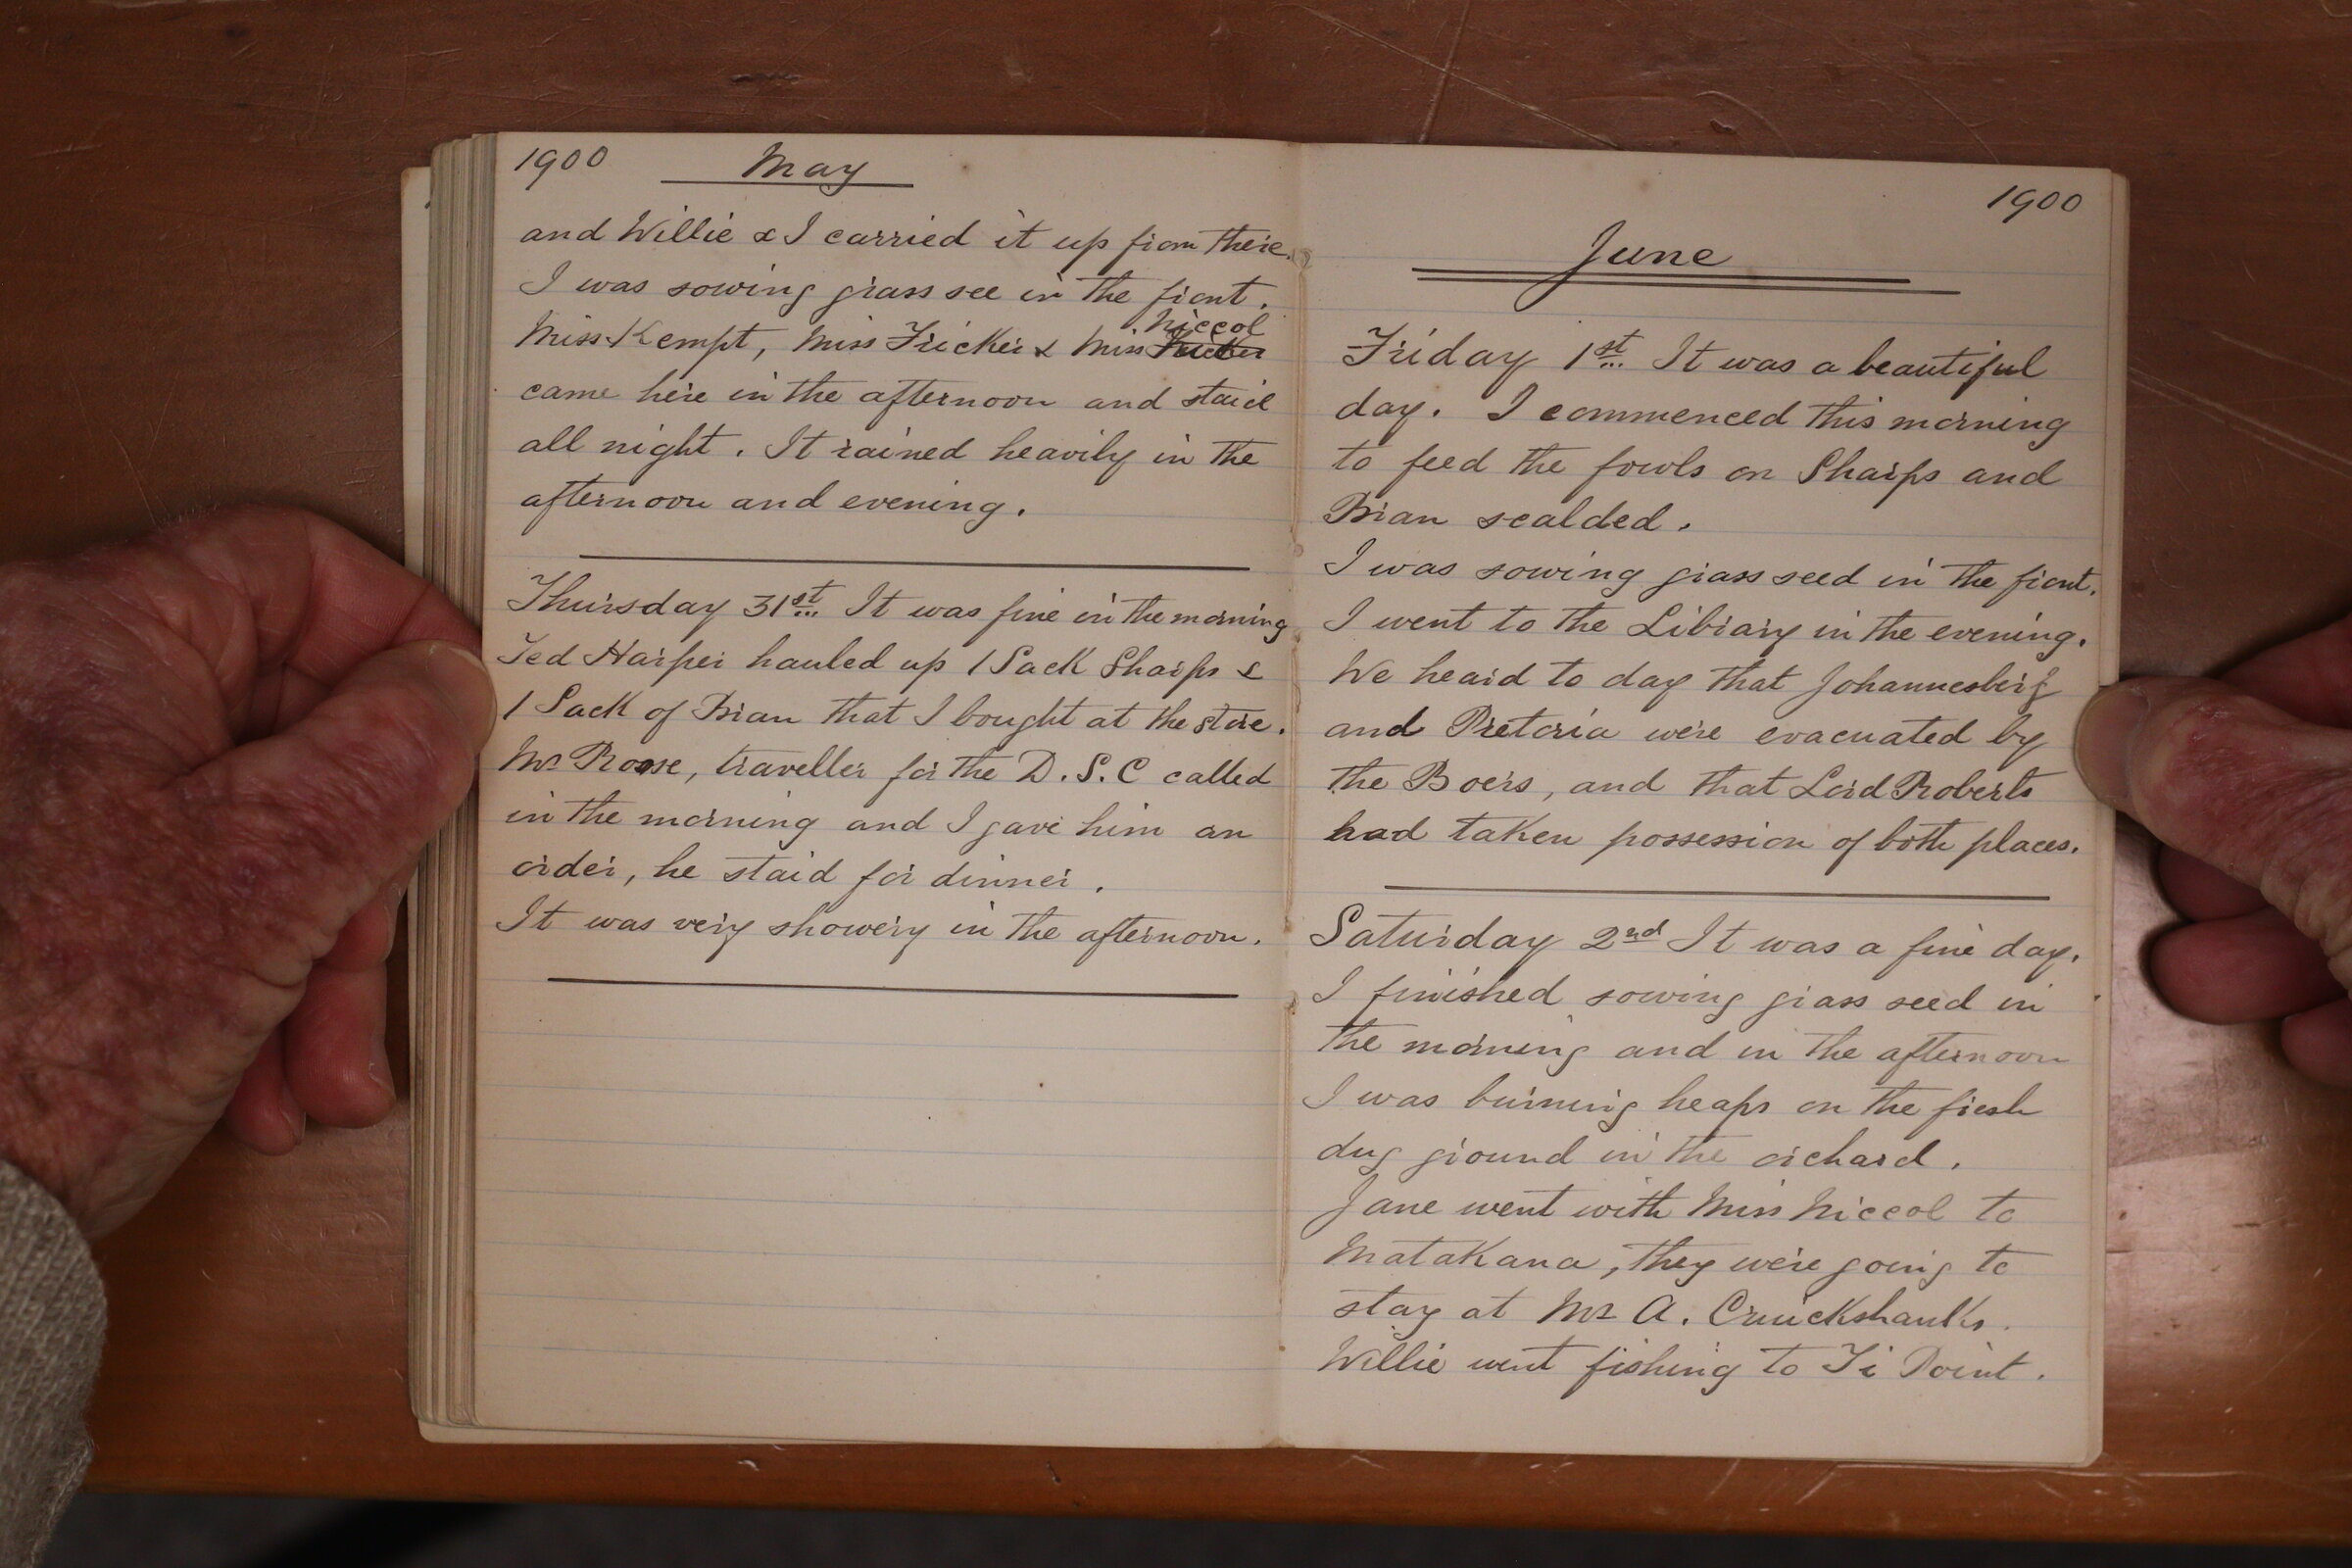 1900 May
and Willie & I carried it up from there.
I was sowing grass see in the front.
Niccol
Miss Kempt, Miss Fricker & Miss Fricker
came here in the afternoon and staid
all night. It rained heavily in the
afternoon and evening.
Thursday 31st It was fine in the morning
Ted Harper hauled up 1 Sack Sharps &
1 Sack of Bran that I bought at the store.
Mr Roose, traveller for the D.S.C called
in the morning and I gave him an
order, he staid for dinner.
It was very showery in the afternoon.
1900
June
Friday 1st It was a beautiful
day. I commenced this morning
to feed the fowls on Sharps and
Bran scalded.
I was sowing grass seed in the front.
I went to the Library in the evening.
We heard to day that Johannesberg
and Pretoria were evacuated by
the Boers, and that Lord Roberts
had taken possession of both places.
Saturday 2nd It was a fine day.
I finished sowing grass seed in
the morning and in the afternoon
I was burning heaps on the fresh
dug ground in the orchard.
Jane went with Miss Niccol to
Matakana, they were going to
stay at Mr A. Cruickshanks.
Willie went fishing to Ti Point.